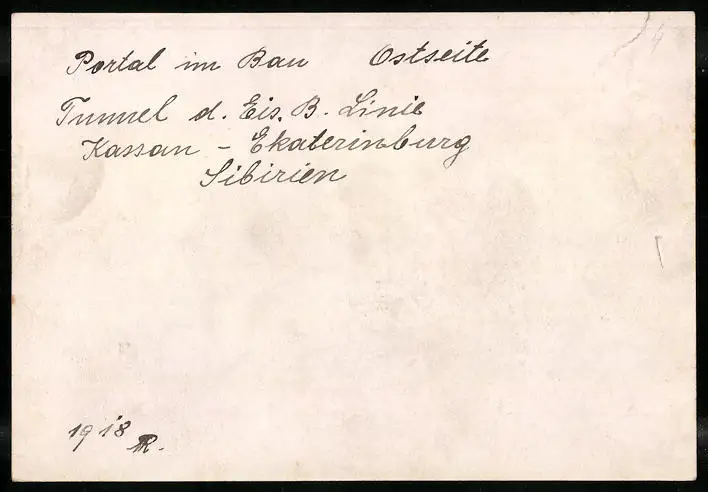 Portal im Bau Ostseite
Tunnel d. Eis. B. Linie
Kassan - Ekaterinburg
Sibirien
1918